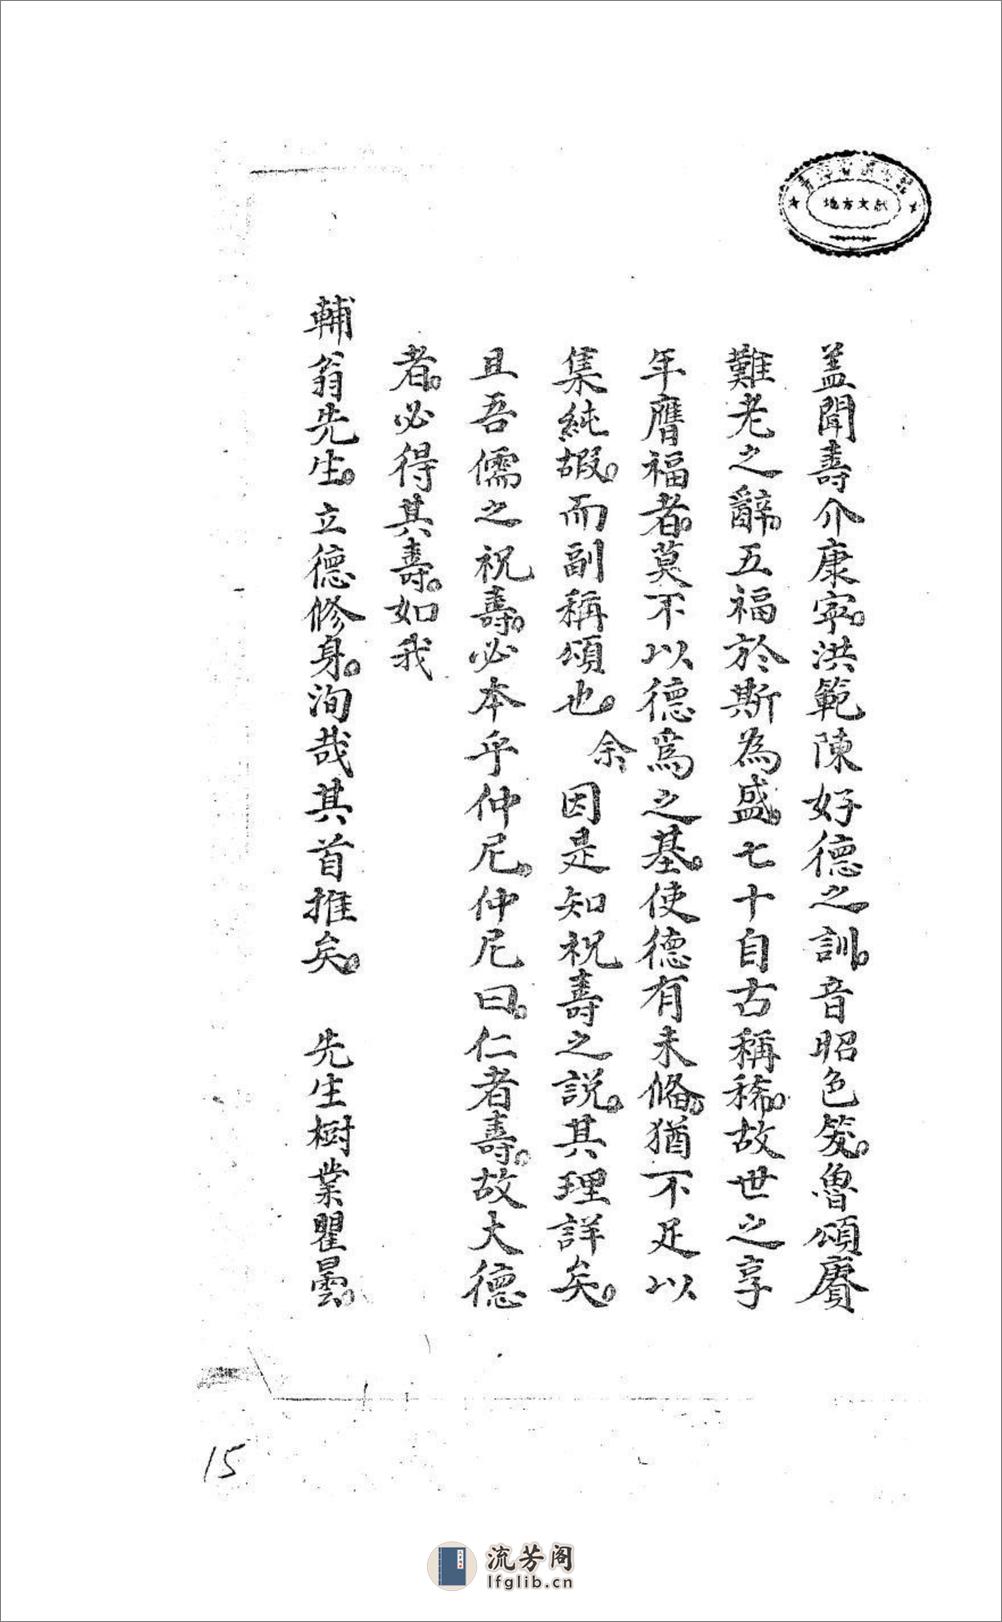 盖聞壽介康寧。洪範陳好德之訓。音昭色笑。魯頌賡
難老之辭。五福於斯為盛。七十自古稱稀。故世之享
年膺福者。莫不以德爲之基。使德有未脩。猶不足以
集純嘏。而副稱頌也。余因是知祝壽之說。其理詳矣。
且吾儒之祝壽。必本乎仲尼。仲尼曰。仁者壽。故大德
者。必得其壽。如我
輔翁先生。立德修身。洵哉其首推矣。 先生樹業瞿曇。
地方文献
15
流芳阁
lfglib.cn